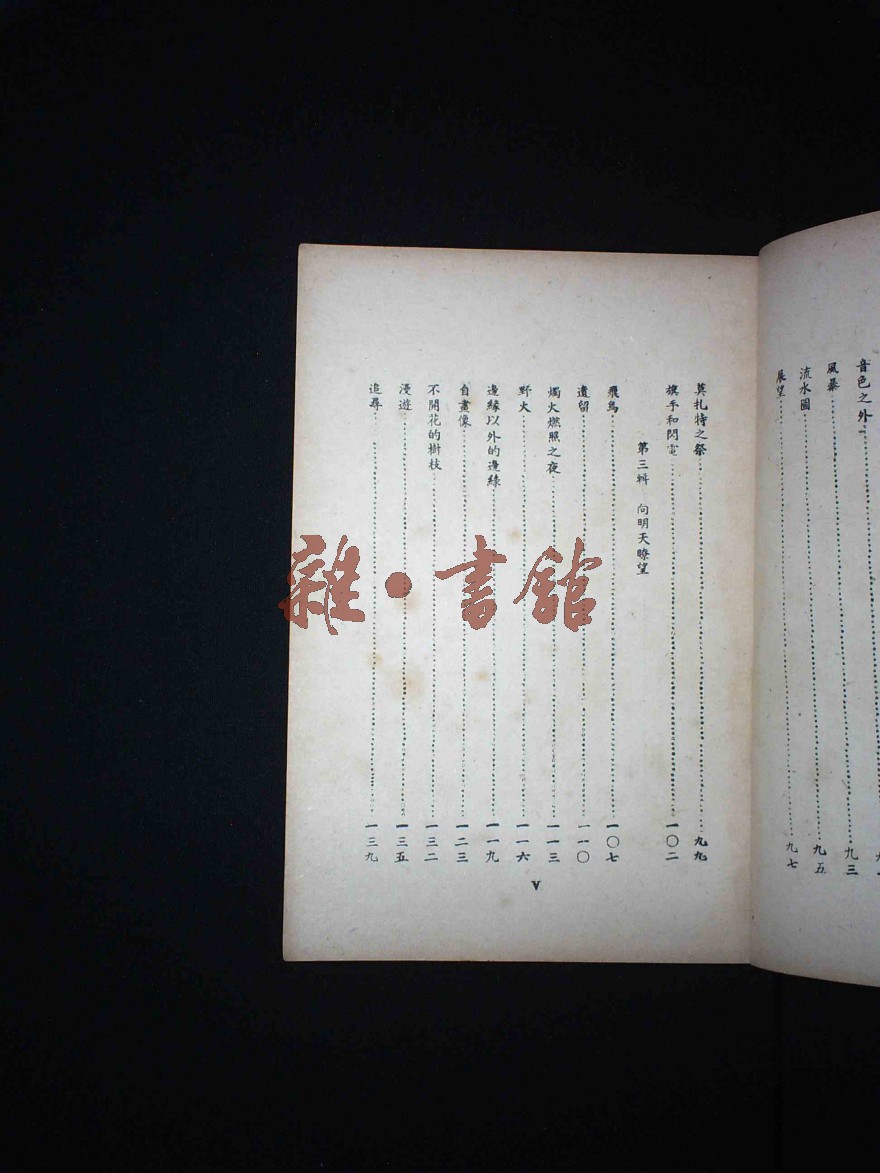 音色之外
風暴
九三
流水圖
九五
展望
九七
莫扎特之祭
九九
旗手和閃電
一〇二
第三輯 向明天瞭望
飛鳥
一〇七
遺留
一一〇
燭火燃照之夜
一一三
野火
一一六
邊緣以外的邊緣
一一九
自畫像
一二三
不開花的樹枝
一三二
漫遊
一三五
追尋
一三九
V
雜·書館